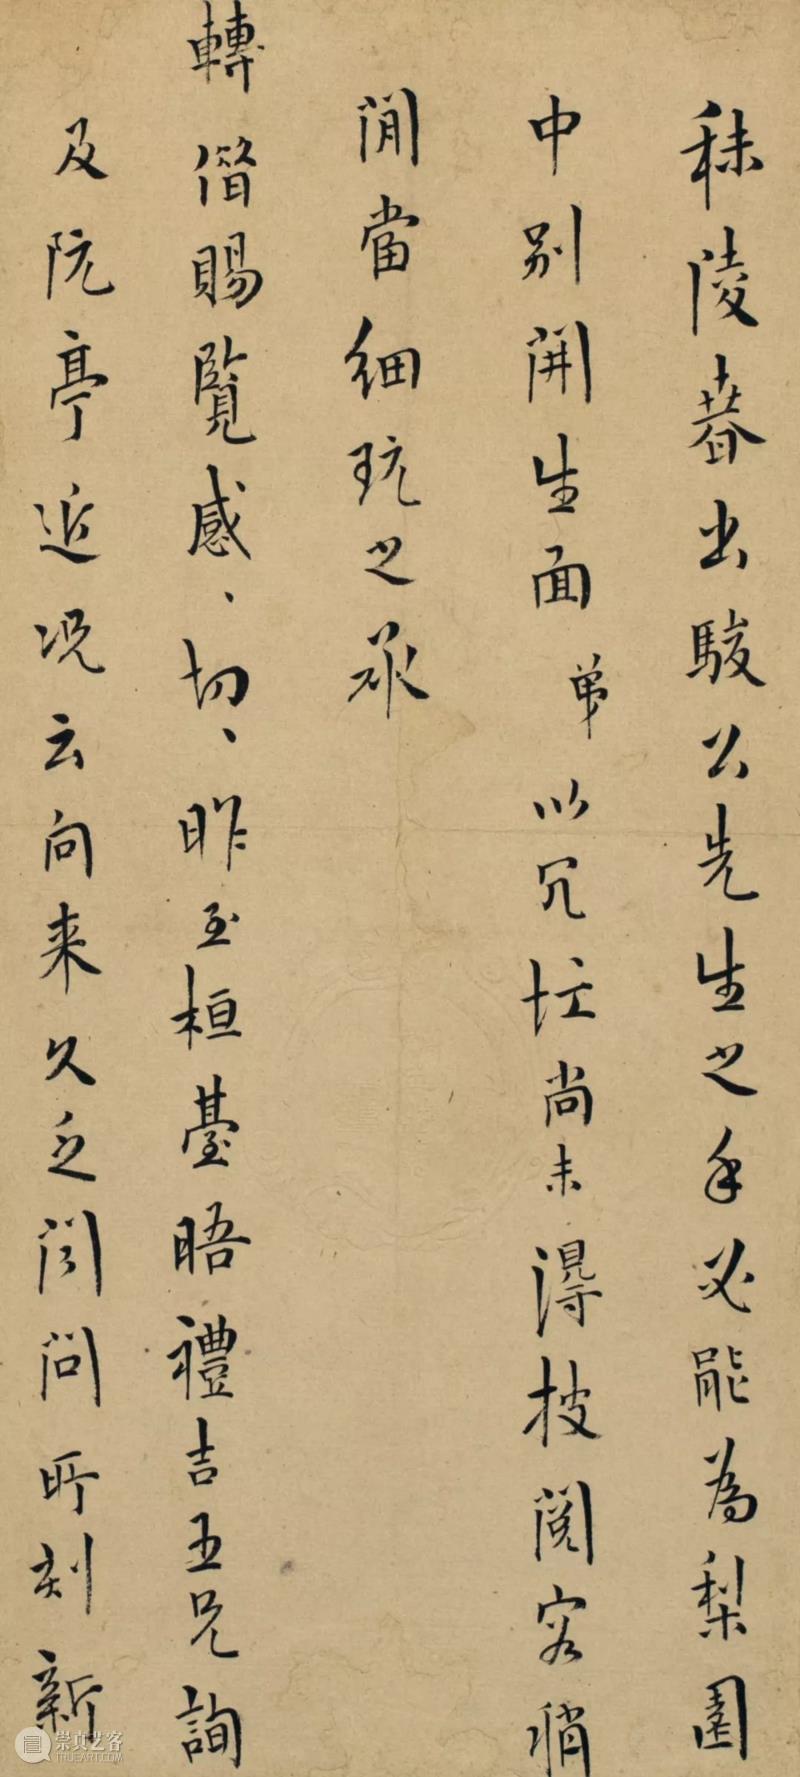 秣陵春出駿公先生之手必能為梨園
中別開生面弟以冗忙尚未得披閱容稍
閒當細玩之承
轉借賜覽感、切、昨至桓臺晤禮吉王兄詢
及阮亭近況云向來久乏聞問所刻新
崇真艺客
TRUEART.COM